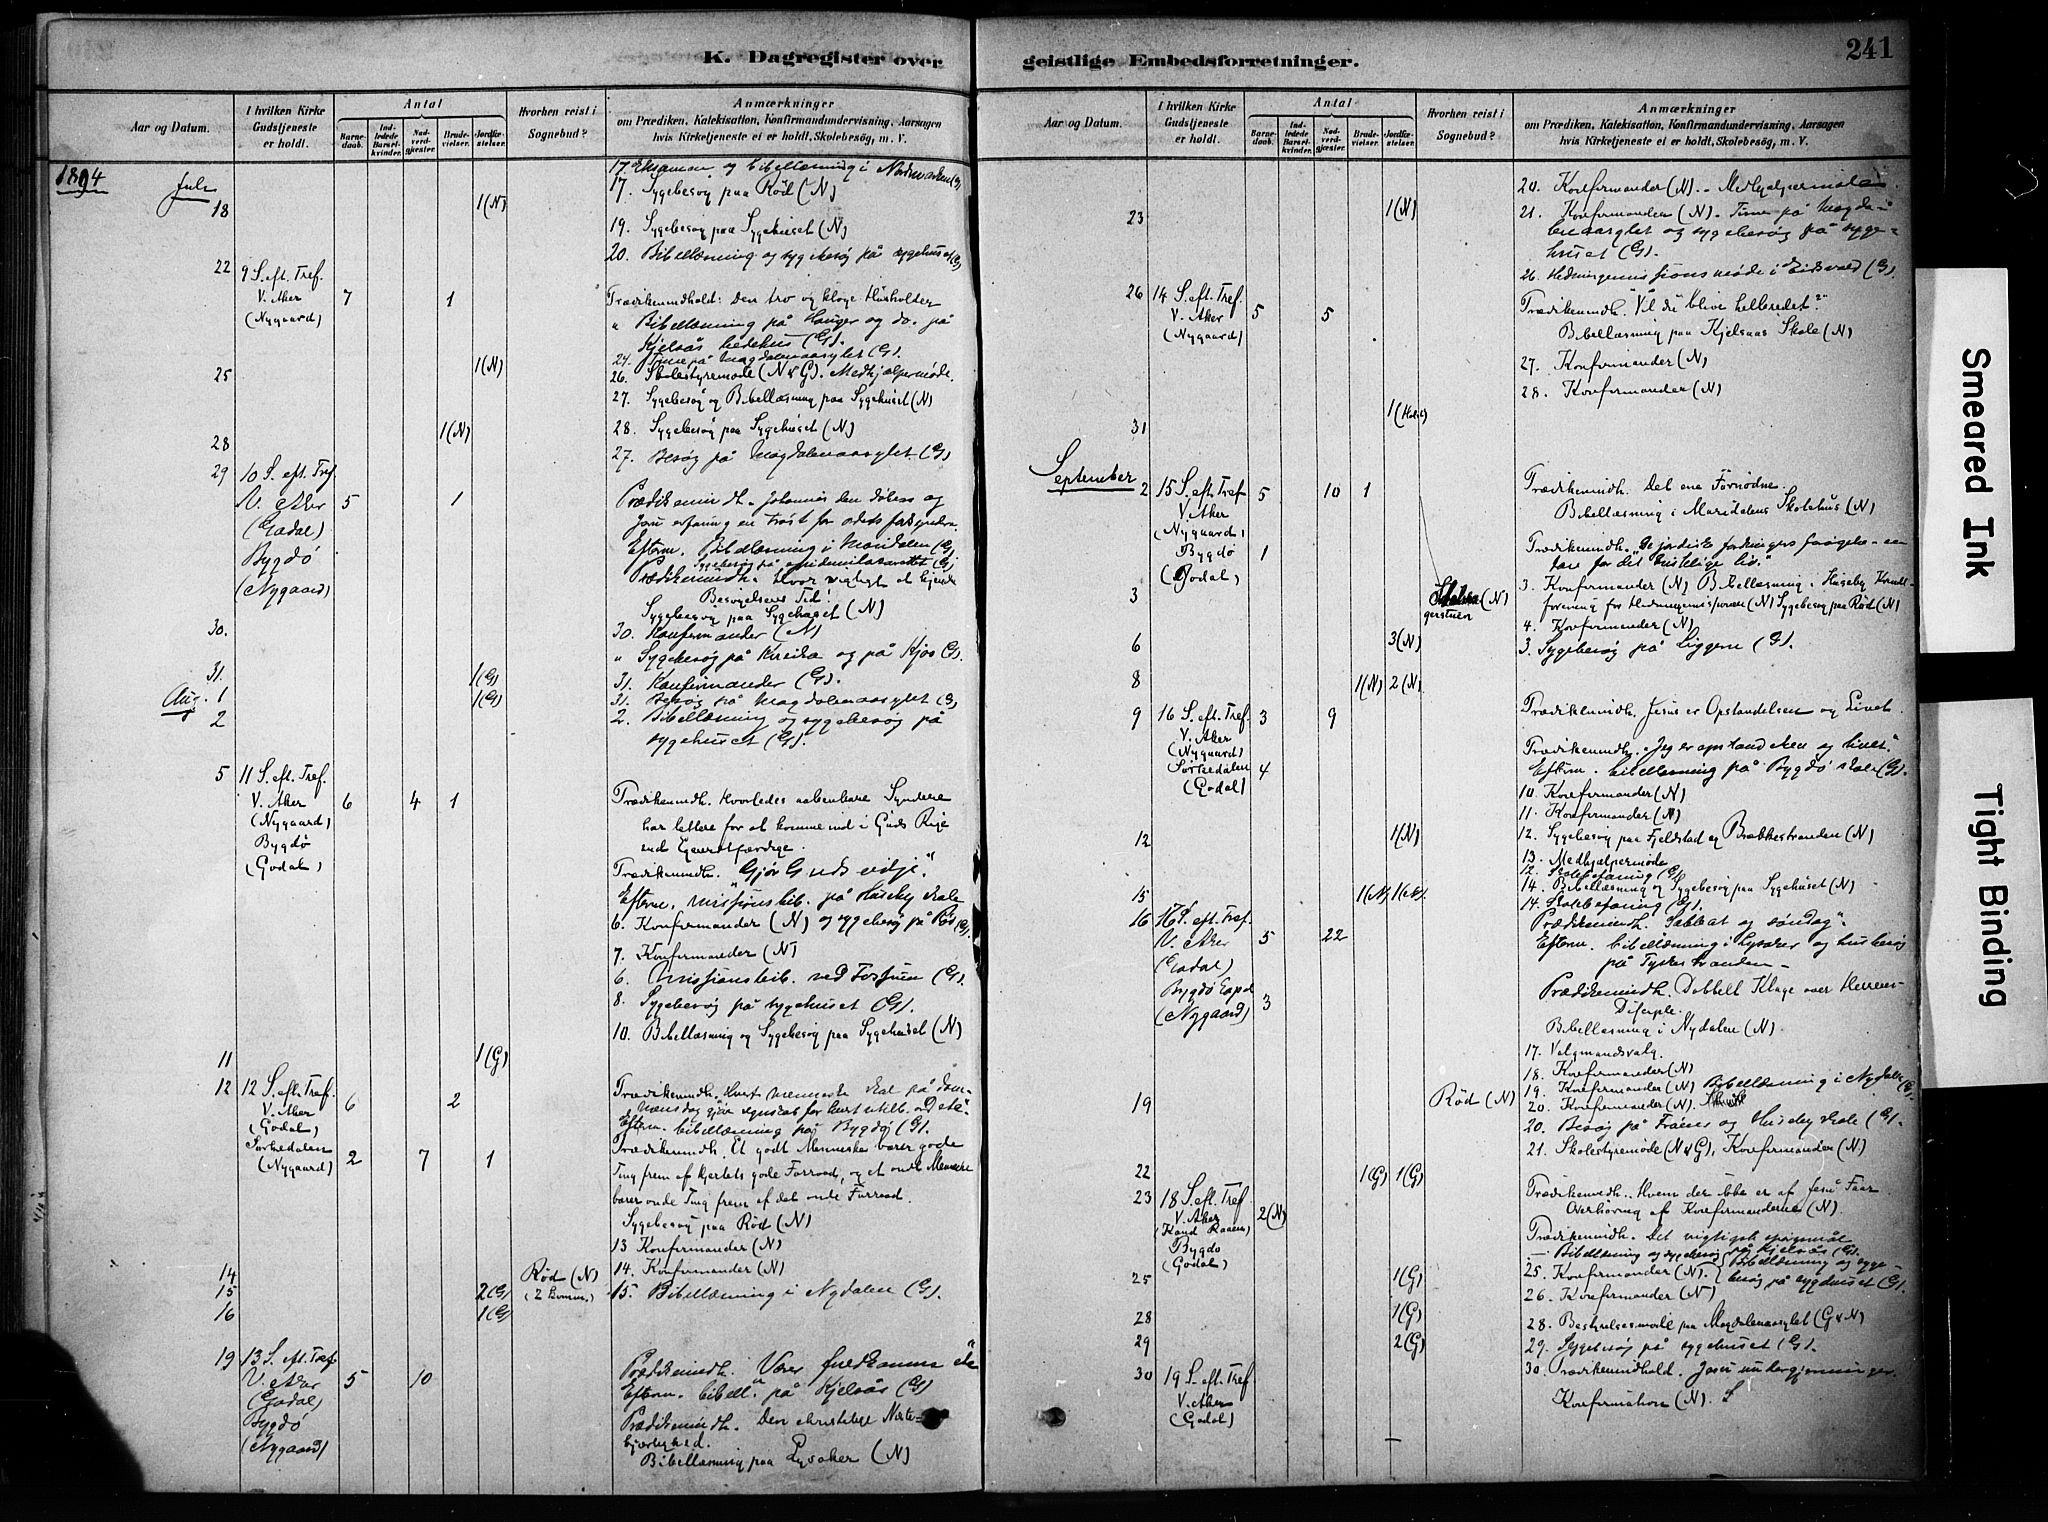 K. Dagregister over
Aar og Datum.
I hvilken Kirke Gudstjeneste er holdt.
Antal
Barnedaab.
Indledede Barselkvinder.
Nadverdgjester.
Brudevielser.
Jordfæstelser.
Hvorhen reist i Sognebud?
Anmærkninger
om Prædiken, Katekisation, Konfirmandundervisning, Aarsagen
hvis Kirketjeneste ei er holdt, Skolebesøg, m. V.
1894
17. Eksamen og bibellæsning i Nordmarken (G)
Juli
17. Sygebesøg paa Rød (N)
18 1(N)
19. Sygebesøg paa Sygehuset (N)
20. Bibellæsning og sygebesøg på sygehuset (G)
22 9 S. eft. Tref.
V. Aker 7 1 Prædikenindhold: Den tro og kloge Husholder
(Nygaard) " Bibellæsning på Hauger og do. på
Kjelsås bedehus (G).
24. Time på Magdalenaasylet (G).
25 1(N) 26. Skolestyremøde (N & G). Medhjælpermøde.
27. Sygebesøg og Bibellæsning paa Sygehuset (N)
28 1(N) 28. Sygebesøg paa Sygehuset (N)
27. Besøg på Magdalenaasylet (G)
29 10 S. eft. Tref.
V. Aker 5 1 Prædikenindh. Johannes den døbers og
(Godal)
Bygdø Efterm. Bibellæsning i Maridalen (G)
(Nygaard) Prædikenindh. Hvor vigtigt at kjende
Besøgelsens Tid!
Sygebesøg paa Sygehuset (N)
30. 30. Konfirmander (N)
" Sygebesøg på og på Kjos (G).
31. 1(G) 31. Konfirmander (G).
Aug. 1 1(G) 31. Besøg på Magdalenaasylet (G)
2 2. Bibellæsning og sygebesøg på
sygehuset (G).
5 11 S. eft. Tref.
V. Aker 6 4 1 Prædikenindh. Hvorledes aabenbare Syndere
(Nygaard) har lettere for at komme ind i Guds Rige
Bygdø end Egenretfærdige.
(Godal) Prædikenindh. "Gjør Guds vilje".
Efterm. missionsbib. på Huseby skole
6. Konfirmander (N) og sygebesøg på Røs (G).
7. Konfirmander (N)
6. Missionsbib. ved Fossum (G).
8. Sygebesøg på sygehuset (G).
10. Bibellæsning og Sygebesøg paa Sygehuset (N)
11 1(G)
12 12 S. eft. Tref.
V. Aker 6 2 Prædikenindh. Hvert menneske skal på dom-
(Godal) mens dag gjøre regnskab for hvert utilb. ord
Efterm. bibellæsning på Bygdø (G).
Sørkedalen Prædikenindh. Et godt Menneske bærer gode
(Nygaard) 2 7 1 Ting frem af hjertets gode Forraad, og et ondt Menneske
bærer onde Ting frem af det onde Forraad.
Sygebesøg paa Rød (N)
13 Konfirmander (N)
14 Rød (N) 14. Konfirmander (N)
15 2(G) (2 Komm.) 15. Bibellæsning i Nydalen (G).
16 1(G)
19 13 S. eft. Tref.
V. Aker 5 10 Prædikenindh. Værer fuldkomne
(Godal) Efterm. bibell. på Kjelsås (G)
Bygdø Prædikenindh. Den christelige Næste-
(Nygaard) kjærlighed.
Bibellæsning paa Lysaker (N)
geistlige Embedsforretninger.
241
Aar og Datum.
I hvilken Kirke Gudstjeneste er holdt.
Antal
Barnedaab.
Indledede Barselkvinder.
Nadverdgjester.
Brudevielser.
Jordfæstelser.
Hvorhen reist i Sognebud?
Anmærkninger
om Prædiken, Katekisation, Konfirmandundervisning, Aarsagen
hvis Kirketjeneste ei er holdt, Skolebesøg, m. V.
20. Konfirmander (N). Medhjælpermøde
23 1(N) 21. Konfirmander (N). Time på Magda-
lenaasylet og sygebesøg på syge-
huset (G).
26. Hedningemissionsmøde i Eidsvold (G).
26 14 S. eft. Tref.
V. Aker 5 5 Prædikenindh. "Vil du blive helbredet?"
(Nygaard) Bibellæsning paa Kjelsaas Skole (N)
27. Konfirmander (N)
28. Konfirmander (N)
31
September
2 15 S. eft. Tref. 5 10 1 Prædikenindh. Det ene Fornødne.
V. Aker Bibellæsning i Maridalens Skolehus (N)
(Nygaard)
Bygdø 1
(Godal)
3 (N) 3. Konfirmander (N) Bibellæsning i Huseby Kvinde-
forening for Hedningemissionen (N) Sygebesøg paa Rød (N)
4. Konfirmander (N)
6 3(N) 3. Sygebesøg på (G).
8 1(N) 2(N)
9 16 S. eft. Tref. 3 9 Prædikenindh. Jesus er Opstandelsen og Livet.
V. Aker
(Nygaard) Prædikenindh. "Jeg er opstandelsen og livet".
Sørkedalen 4 Efterm. bibellæsning på Bygdø skole (G).
(Godal) 10. Konfirmander (N)
11. Konfirmander (N)
12 1(N) 12. Sygebesøg paa Fjeldstad og Bækkestranden (N)
13. Medhjælpermøde
12. Skolebesøg (G)
14. Bibellæsning og Sygebesøg paa Sygehuset (N)
15
16 17 S. eft. Tref.
V. Aker 5 22 Prædikenindh. "Sabbat og søndag".
(Godal) Efterm. bibellæsning i Lysaker og husbesøg
på Tyskestranden.
Bygdø Kapel 3 Prædikenindh. Dobbelt Klage over Herrens
(Nygaard) Disciple.
Bibellæsning i Nydalen (N).
17. Valgmandsvalg.
18. Konfirmander (N)
19 Rød (N) 19. Konfirmander (N) Bibellæsning i Nydalen (G).
20. Konfirmander (N).
20. Besøg på Frøen og Huseby skole (G).
21. Skolestyremøde (N & G), Konfirmander (N)
22 1(G) 1(G)
23 18 S. eft. Tref.
V. Aker 2(N) Prædikenindh.. Hvem der ikke er af Jesu Faar
(Kand. Raaen) Overhøring af Konfirmanderne (N)
Bygdø Prædikenindh. Det vigtigste spørgsmål
(Godal) — Bibellæsning og sygebesøg på Kjelsås (G).
25 1(G) 25. Konfirmander (N). Bibellæsning og syge-
besøg på sygehuset (G).
26. Konfirmander (N)
28 1(G) 28. Bestyrelsesmøde paa Magdalenaasylet (G & N)
29 2(G) 29. Sygebesøg på sygehuset (G).
30 19 S. eft. Tref. 30. Prædikenindhold. Jesu undergjerninger.
V. Aker Konfirmation (N).
(Godal)
Smeared Ink
Tight Binding